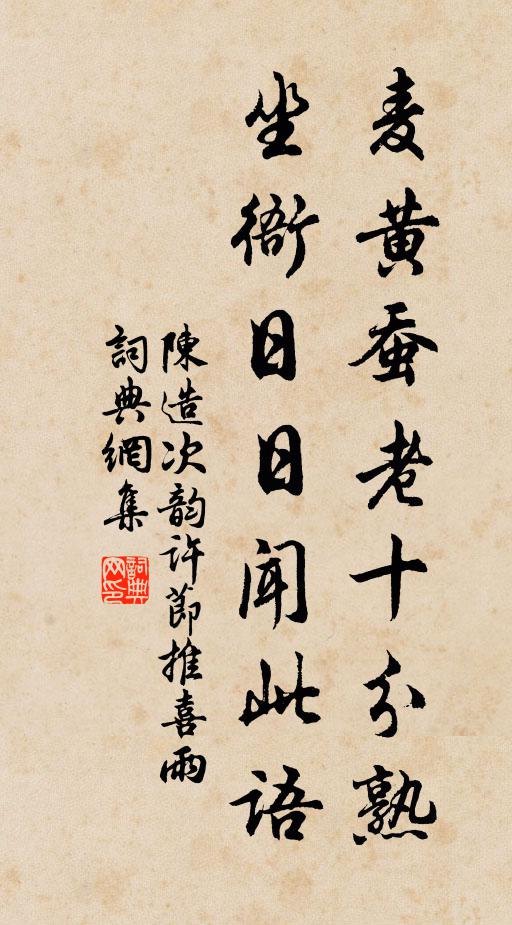 麦黄蚕老十分熟
坐衙日日闻此语
陳造次韵许節推喜雨
詞典網集
詞典网印